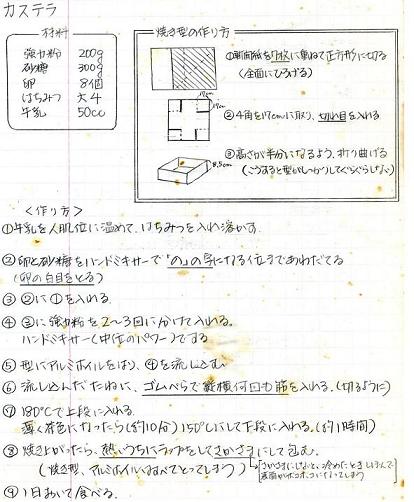 カステラ
材料
強力粉 200g
砂糖 300g
卵 8個
はちみつ 大4
牛乳 50cc
焼き型の作り方
①新聞紙を7枚に重ねて正方形に切る
(全面にひろげる)
17cm
17cm
②4角を17cmに取り、切れ目を入れる
③高さが半分になるよう、折り曲げる
(こうすると型がしっかりしてぐらぐらしない)
8.5cm
<作り方>
①牛乳を人肌位に温めて、はちみつを入れ溶かす。
②卵と砂糖をハンドミキサーで"の"の字になる位まであわだてる
(卵の白目をとる)
③②に①を入れる。
④③に強力粉を2〜3回にわけて入れる。
ハンドミキサー(中位のパワー)でする
⑤型にアルミホイルをはり、④を流し込む
⑥流し込んだたねに、ゴムべらで縦横何回も筋を入れる。(切るように)
⑦180℃で上段に入れる。
薄く茶色になったら(約10分)150℃にして下段に入れる。(約1時間)
⑧焼き上がったら、熱いうちにラップをしてさかさまにして包む。
(焼き型、アルミホイルはすべてとってしまう)
さかさまにしないと、冷めたとき
表面がボコボコになってしまう
⑨1日おいて食べる。